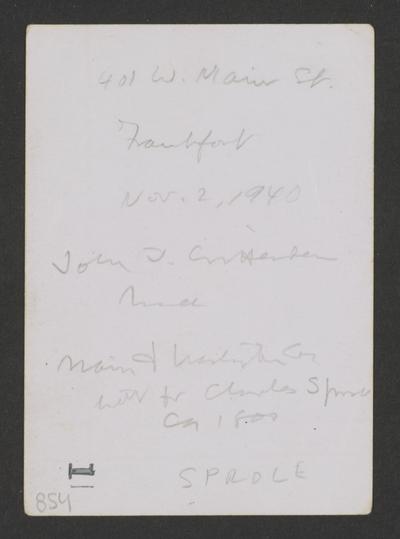 401 W. Main St.
Frankfort
Nov. 2, 1940
John J. Crittenden
Main & Washington
built for Charles Sprole
Ca 1800
SPROLE
1
854